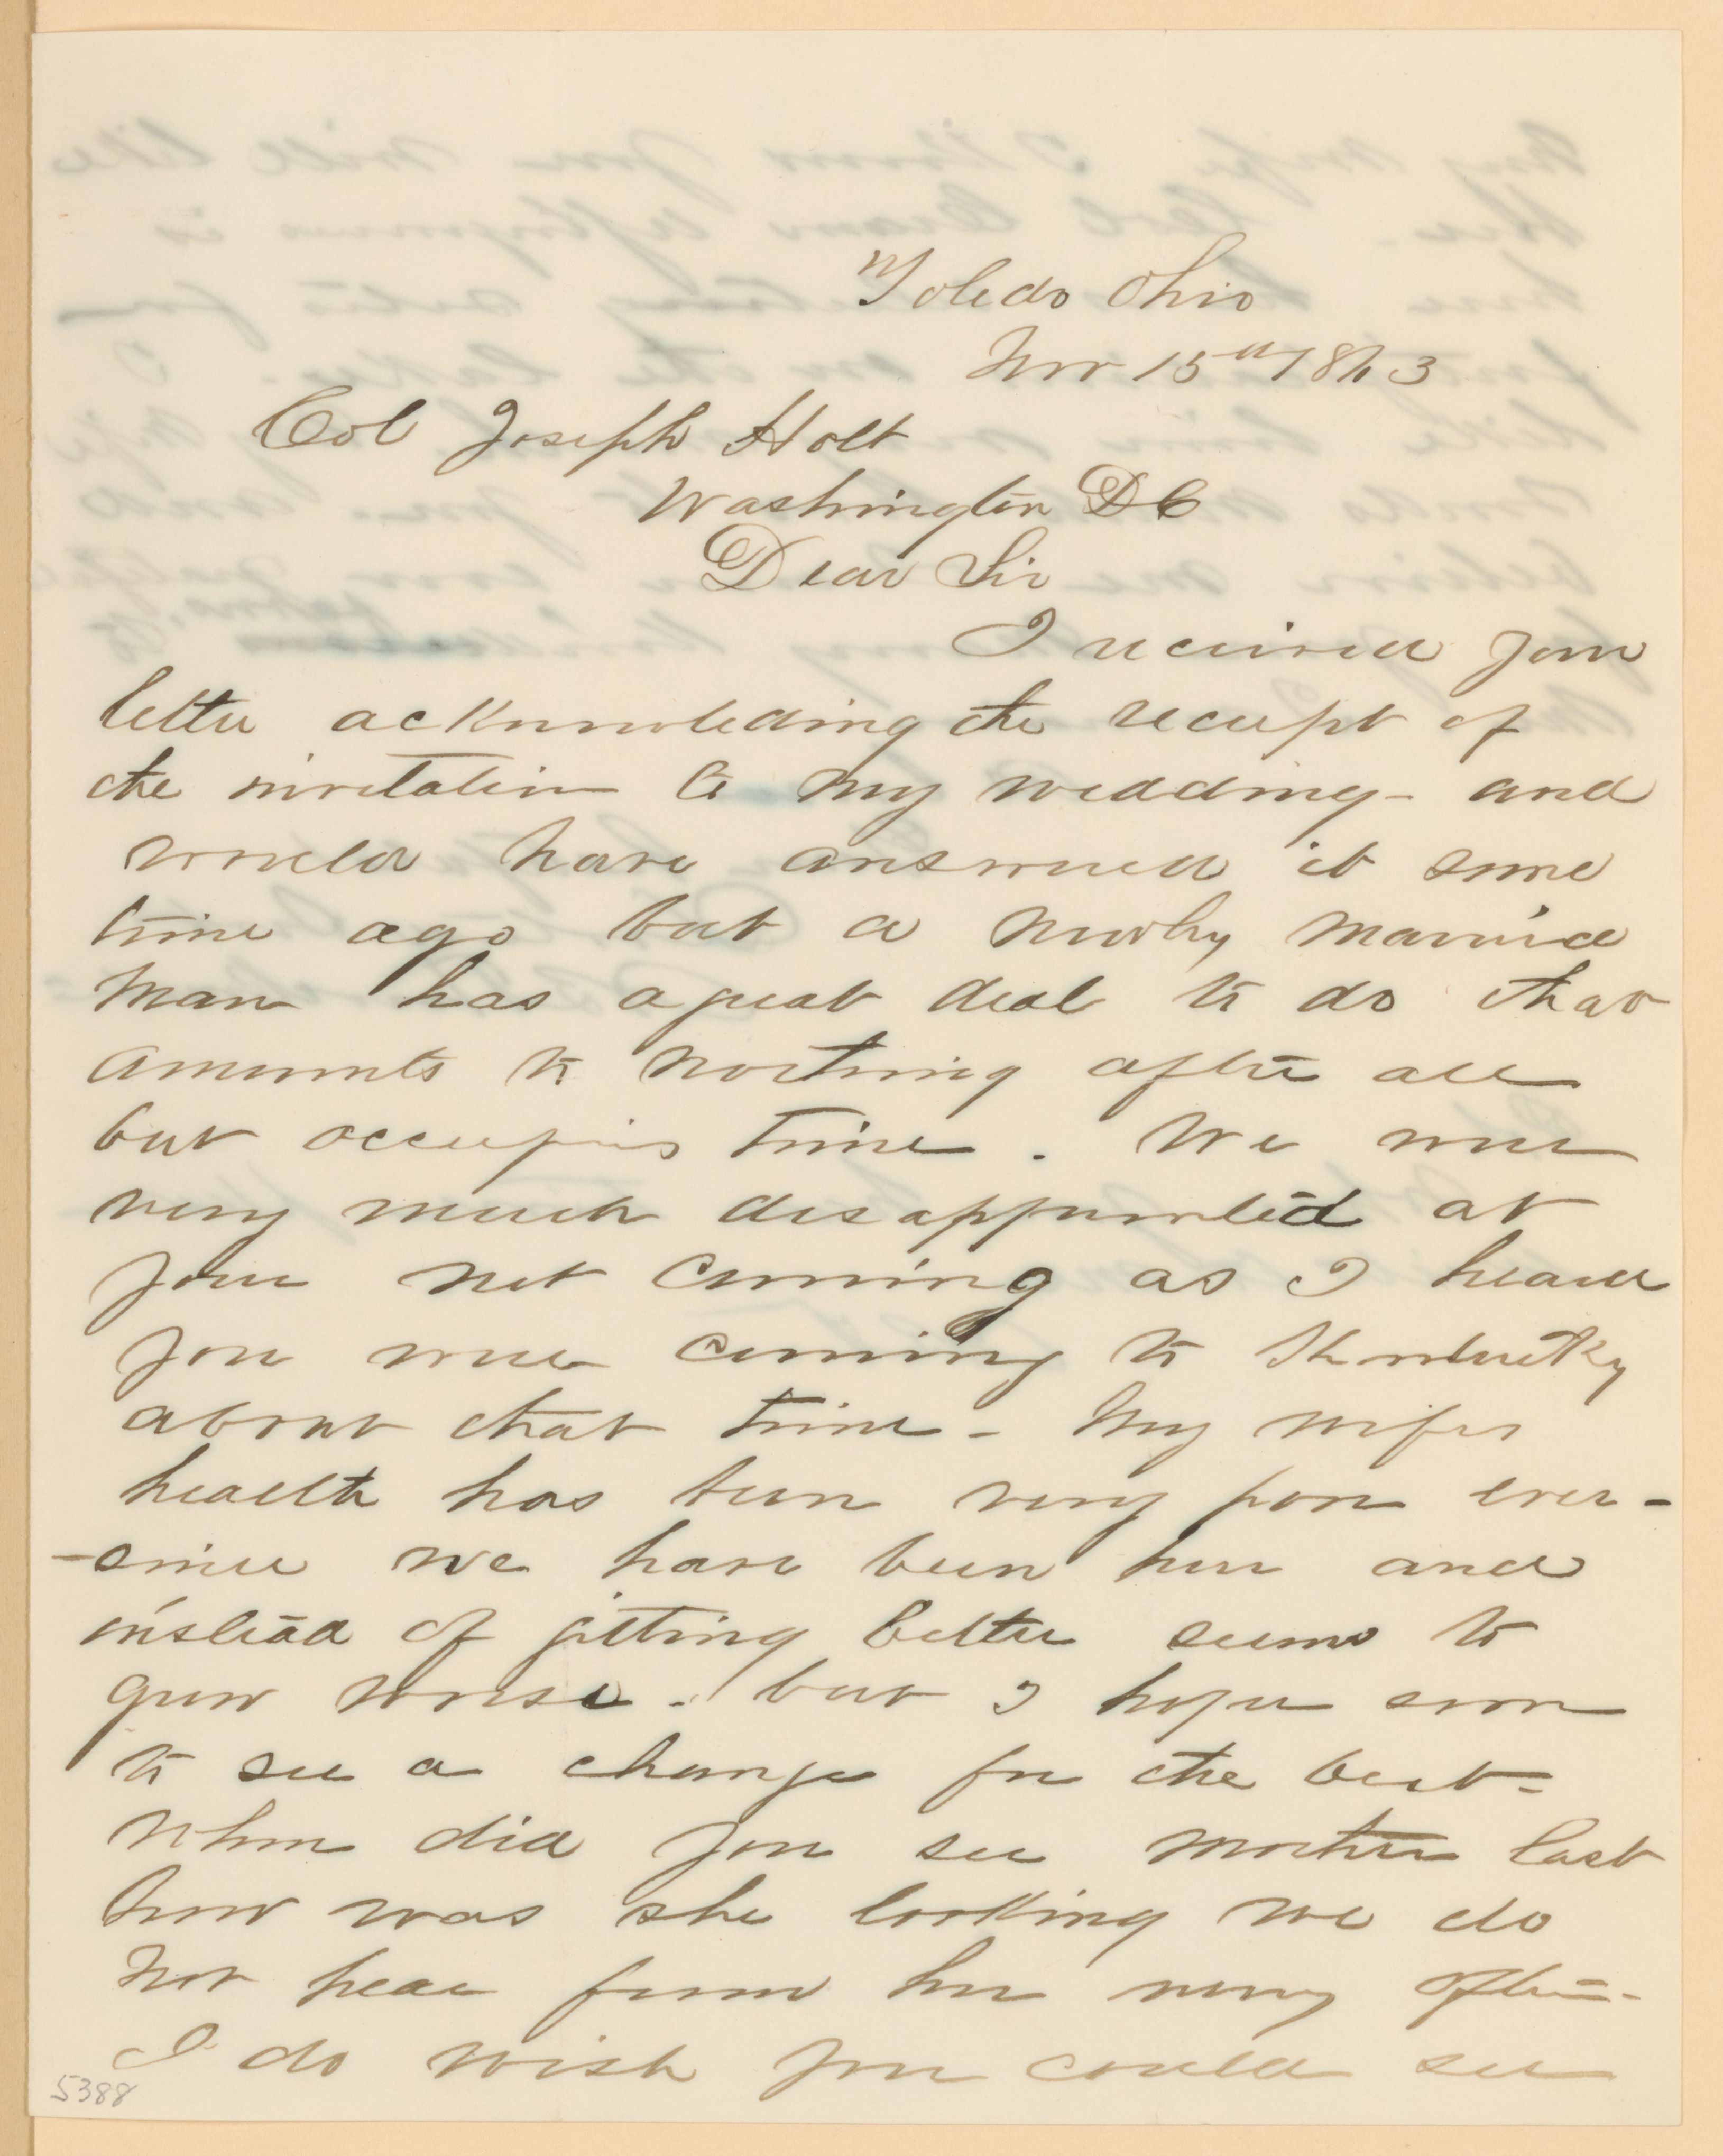 Toledo Ohio
Nov 15th 1863
Col Joseph Holt
Washington DC
Dear Sir
I received your
letter acknowleding the receipt of
the invitation to my wedding - and
would have answered it some
time ago but a newly married
man has a great deal to do that
amounts to nothing after all
but occupies time. We were
very much disappointed at
your not coming as I heard
you were coming to Kentucky
about that time - My wifes
health has been very poor ever-
-since we have been here and
instead of getting better seems to
grow worse. but I hope soon
to see a change for the best=
When did you see mother last
how was she looking we do
not hear from her very often-
I do wish you could see
5388